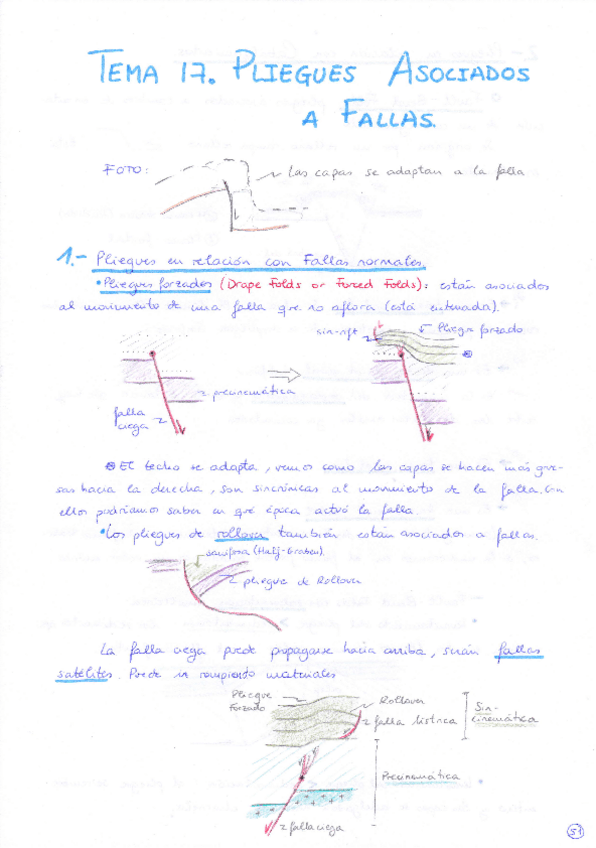 TEMA 17. PLIEGUES ASOCIADOS
A FALLAS.
FOTO:
Las capas se adaptan a la falla
1.- Pliegues en relación con Fallas normales.
• Pliegues forzados (Drape Folds or Forced Folds): están asociados
al movimiento de una falla que no aflora (está enterrada).
sin-rift
Pliegue forzado
precinemática
falla
ciega
El techo se adapta, vemos como las capas se hacen más grue-
sas hacia la derecha, son sincrónicas al movimiento de la falla. Con
ellos podríamos saber en qué época actuó la falla
• Los pliegues de rollover también están asociados a fallas.
(Half-Graben)
pliegue de Rollover
La falla ciega puede propagarse hacia arriba, serán fallas
satélites. Puede ir rompiendo materiales
Pliegue
Forzado
Rollover
falla lístrica
Sin-
cinemática
Precinemática
falla ciega
51